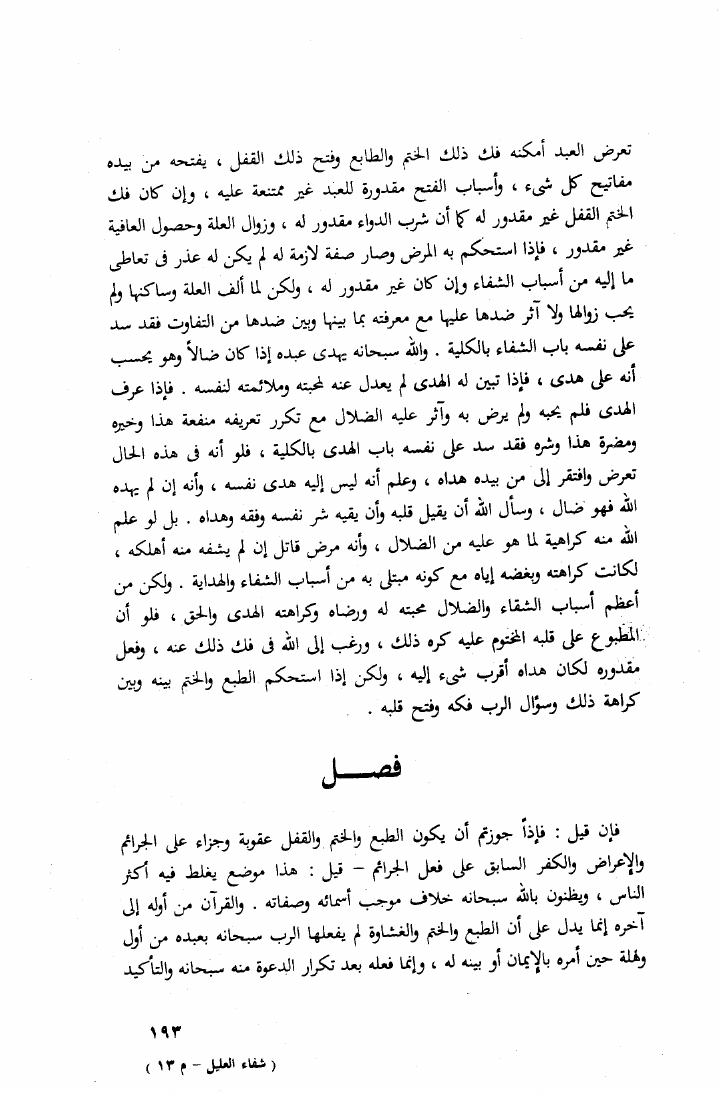 تعرض العبد أمكنه فك ذلك الختم والطابع وفتح ذلك القفل ، يفتحه من بيده
مفاتيح كل شىء ، وأسباب الفتح مقدورة للعبد غير ممتنعة عليه ، وإن كان فك
الختم القفل غير مقدور له كما أن شرب الدواء مقدور له ، وزوال العلة وحصول العافية
غير مقدور ، فإذا استحكم به المرض وصار صفة لازمة له لم يكن له عذر فى تعاطى
ما إليه من أسباب الشفاء وإن كان غير مقدور له ، ولكن لما ألف العلة وساكنها ولم
يحب زوالها ولا آثر ضدها عليها مع معرفته بما بينها وبين ضدها من التفاوت فقد سد
على نفسه باب الشفاء بالكلية . والله سبحانه يهدى عبده إذا كان ضالاً وهو يحسب
أنه على هدى ، فإذا تبين له الهدى لم يعدل عنه لمحبته وملائمته لنفسه . فإذا عرف
الهدى فلم يحبه ولم يرض به وآثر عليه الضلال مع تكرر تعريفه منفعة هذا وخيره
ومضرة هذا وشره فقد سد على نفسه باب الهدى بالكلية ، فلو أنه فى هذه الحال
تعرض وافتقر إلى من بيده هداه ، وعلم أنه ليس إليه هدى نفسه ، وأنه إن لم يهده
الله فهو ضال ، وسأل الله أن يقيل قلبه وأن يقيه شر نفسه وفقه وهداه . بل لو علم
الله منه كراهية لما هو عليه من الضلال ، وأنه مرض قاتل إن لم يشفه منه أهلكه ،
لكانت كراهته وبغضه إياه مع كونه مبتلى به من أسباب الشفاء والهداية . ولكن من
أعظم أسباب الشقاء والضلال محبته له ورضاه وكراهته الهدى والحق ، فلو أن
المطبوع على قلبه المختوم عليه كره ذلك ، ورغب إلى الله فى فك ذلك عنه ، وفعل
مقدوره لكان هداه أقرب شىء إليه ، ولكن إذا استحكم الطبع والختم بينه وبين
كراهة ذلك وسؤال الرب فكه وفتح قلبه .
فصـــل
فإن قيل : فإذاً جوزتم أن يكون الطبع والختم والقفل عقوبة وجزاء على الجرائم
والإعراض والكفر السابق على فعل الجرائم – قيل : هذا موضع يغلط فيه أكثر
الناس ، ويظنون بالله سبحانه خلاف موجب أسمائه وصفاته . والقرآن من أوله إلى
آخره إنما يدل على أن الطبع والختم والغشاوة لم يفعلها الرب سبحانه بعبده من أول
وهلة حين أمره بالإيمان أو بينه له ، وإنما فعله بعد تكرار الدعوة منه سبحانه والتأكيد
١٩٣
( شفاء العليل – م ١٣ )